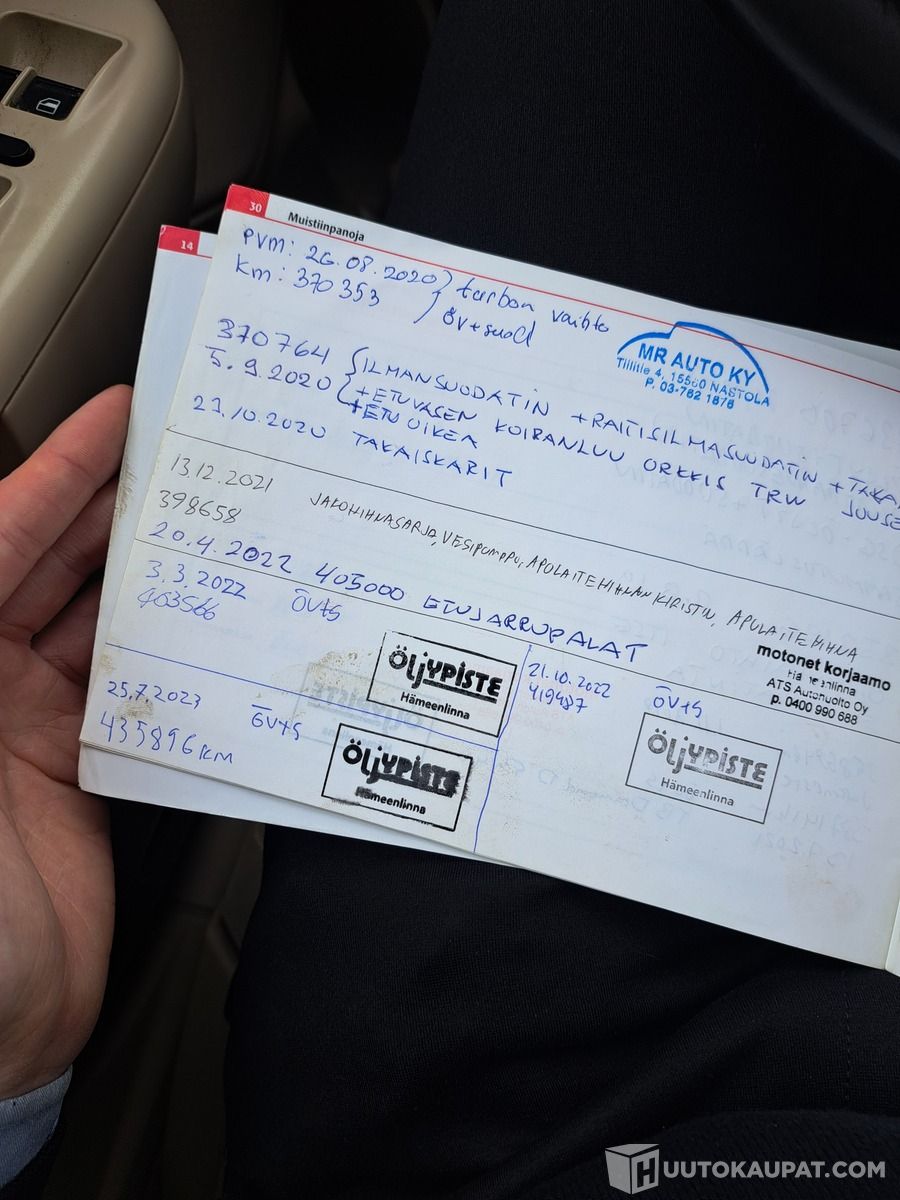 14
30 Muistiinpanoja
PVM: 26.08.2020 } turbon vaihto
Km: 370 353 öv+suod
MR AUTO KY
Tillitie 4, 15560 NASTOLA
P. 03-762 1878
370764 ILMANSUODATIN + RAITISILMASUODATIN + TAKA
5.9.2020 + ETUVASEN KOIRANLUU ORKKIS TRW
+ ETU OIKEA
29.10.2020 TAKAISKARIT
13.12.2021 JAKOHIHNASARJA, VESIPUMPPU, APULAITEHIHNAN KIRISTIN, APULAITEHIHNA
398658
motonet korjaamo
Hämeenlinna
ATS Autohuolto Oy
p. 0400 990 688
20.4.2022 405000 ETUJARRUPALAT
3.3.2022 ÖV+S
403566
ÖLJYPISTE
Hämeenlinna
21.10.2022 ÖV+S
419487
ÖLJYPISTE
Hämeenlinna
25.7.2023 ÖV+S
435896 KM
ÖLJYPISTE
Hämeenlinna
HUUTOKAUPAT.COM